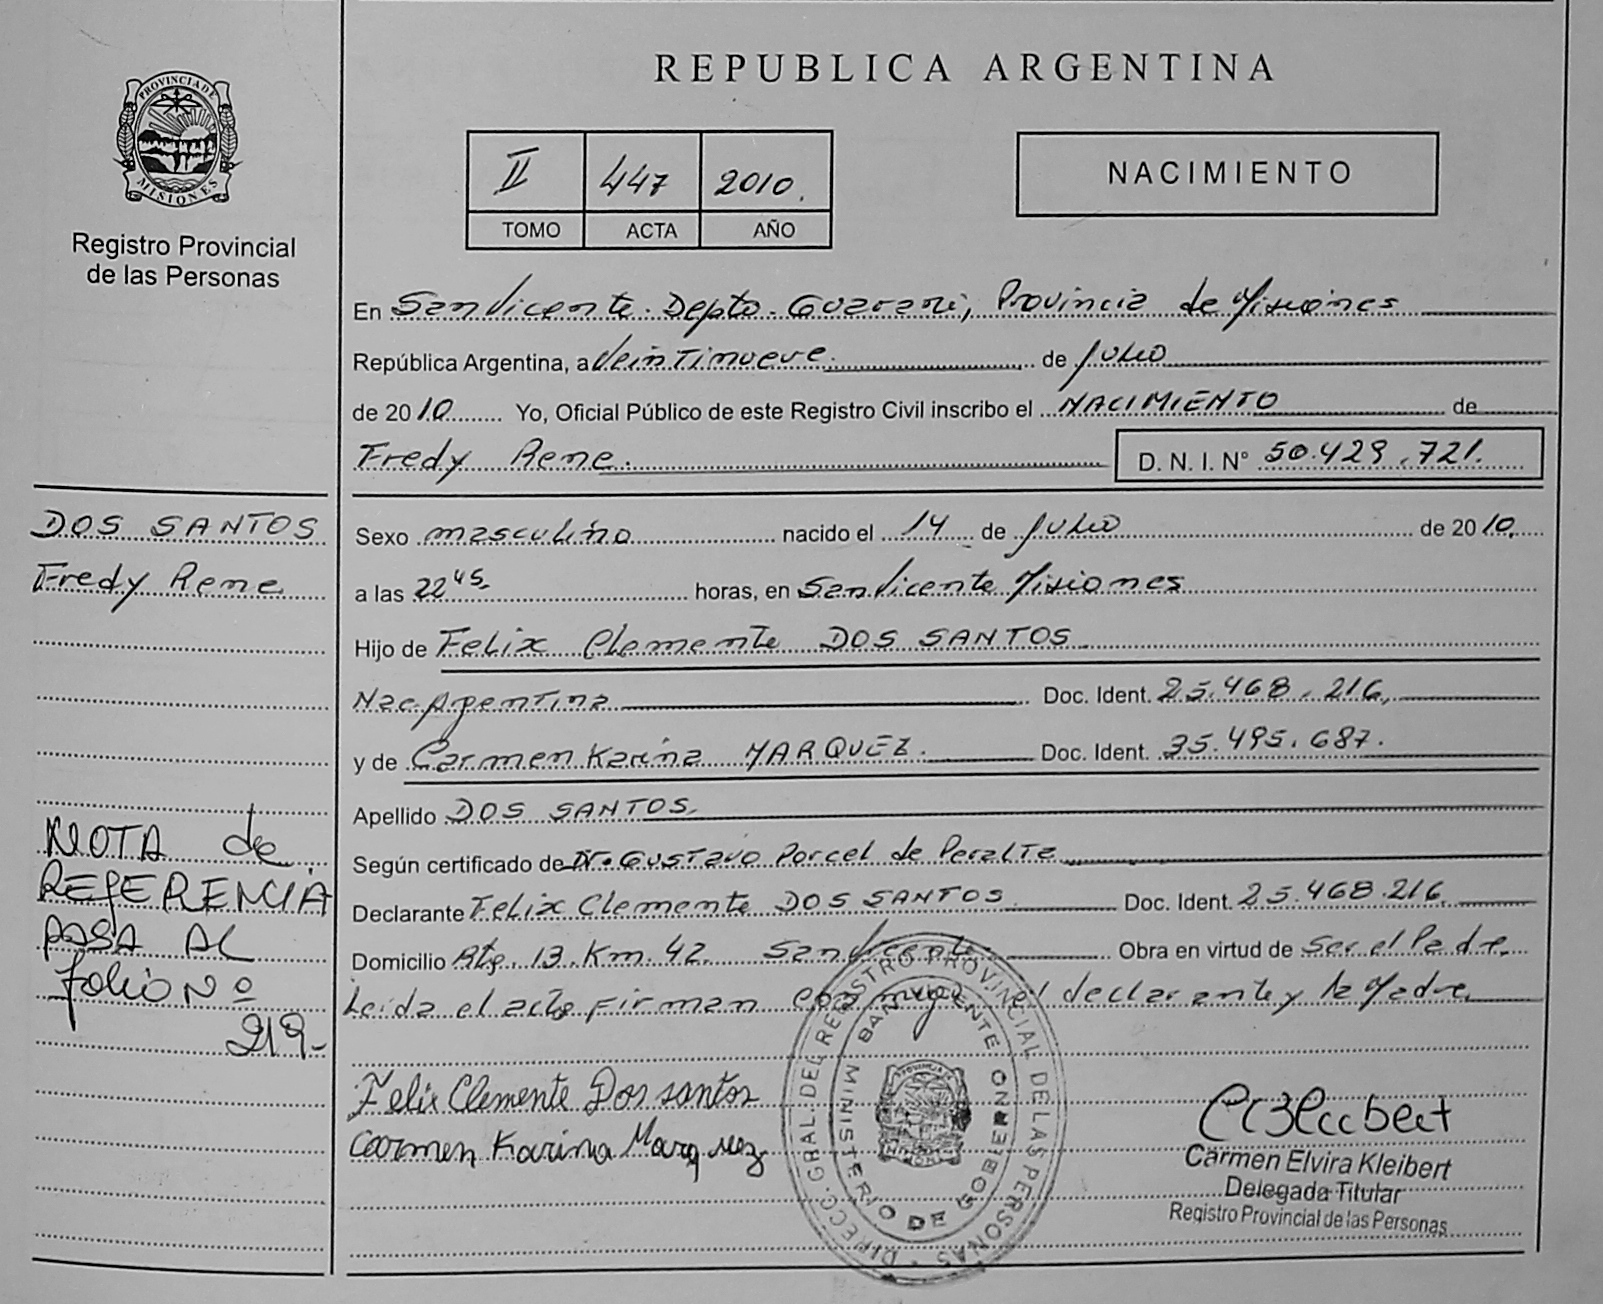 REPUBLICA ARGENTINA
PROVINCIA DE
MISIONES
Registro Provincial
de las Personas
II 447 2010.
TOMO ACTA AÑO
NACIMIENTO
En San Vicente. Depto. Guarani, Provincia de Misiones
República Argentina, a Veintinueve. de Julio
de 2010. Yo, Oficial Público de este Registro Civil inscribo el NACIMIENTO de
Fredy Rene. D. N. I. N° 50.429.721.
DOS SANTOS
Fredy Rene
Sexo masculino nacido el 14 de Julio de 2010.
a las 22 45 horas, en San Vicente Misiones
Hijo de Felix Clemente DOS SANTOS
Nac. Argentina Doc. Ident. 25.468.216,
y de Carmen Karina MARQUEZ. Doc. Ident. 35.495.687.
Apellido DOS SANTOS
Según certificado de Dr. Gustavo Porcel de Peralta
Declarante Felix Clemente DOS SANTOS Doc. Ident. 25.468.216
Domicilio Rta. 13. Km. 42. San Vicente Obra en virtud de Ser el Padre
Leida el acta firman con migo el declarante y la Madre
NOTA de
REFERENCIA
PASA AL
folio Nº
219-
Felix Clemente Dos santos
Carmen Karina Marquez
DIRECC. GRAL. DEL REGISTRO PROVINCIAL DE LAS PERSONAS
MINISTERIO DE GOBIERNO
SAN VICENTE
Carmen Elvira Kleibert
Delegada Titular
Registro Provincial de las Personas